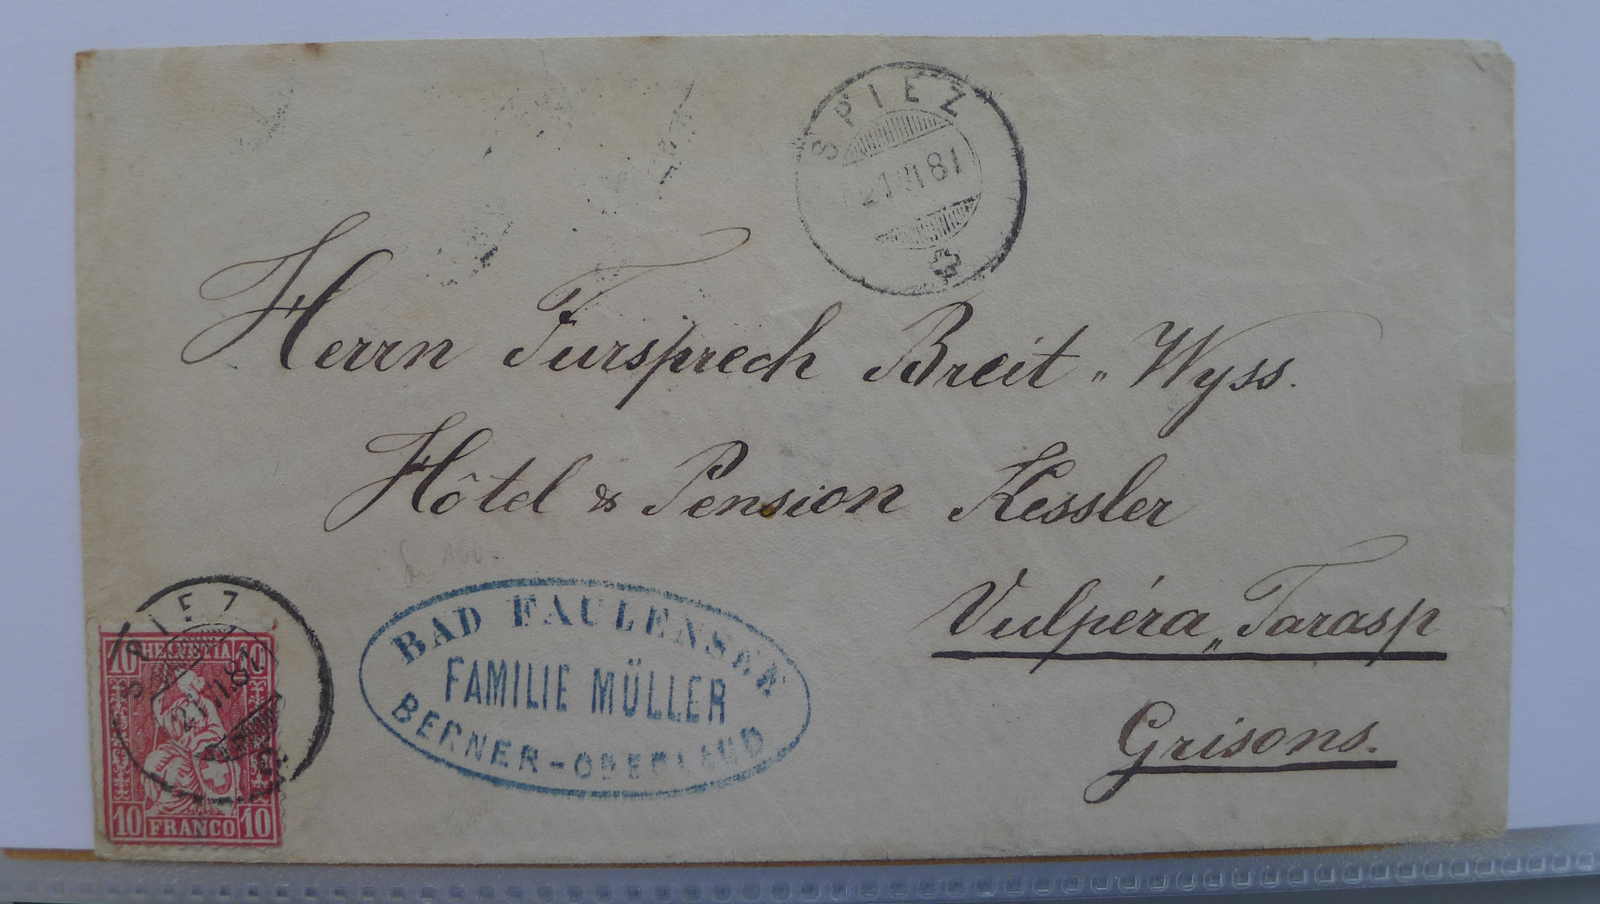 SPIEZ
21 VII 81
Herrn Fursprech Breit „ Wyss.
Hôtel & Pension Kessler
Vulpéra „ Tarasp
Grisons.
SPIEZ
21 VII 81
10 HELVETIA 10
10 FRANCO 10
BAD FAULENSEE
FAMILIE MÜLLER
BERNER-OBERLAND